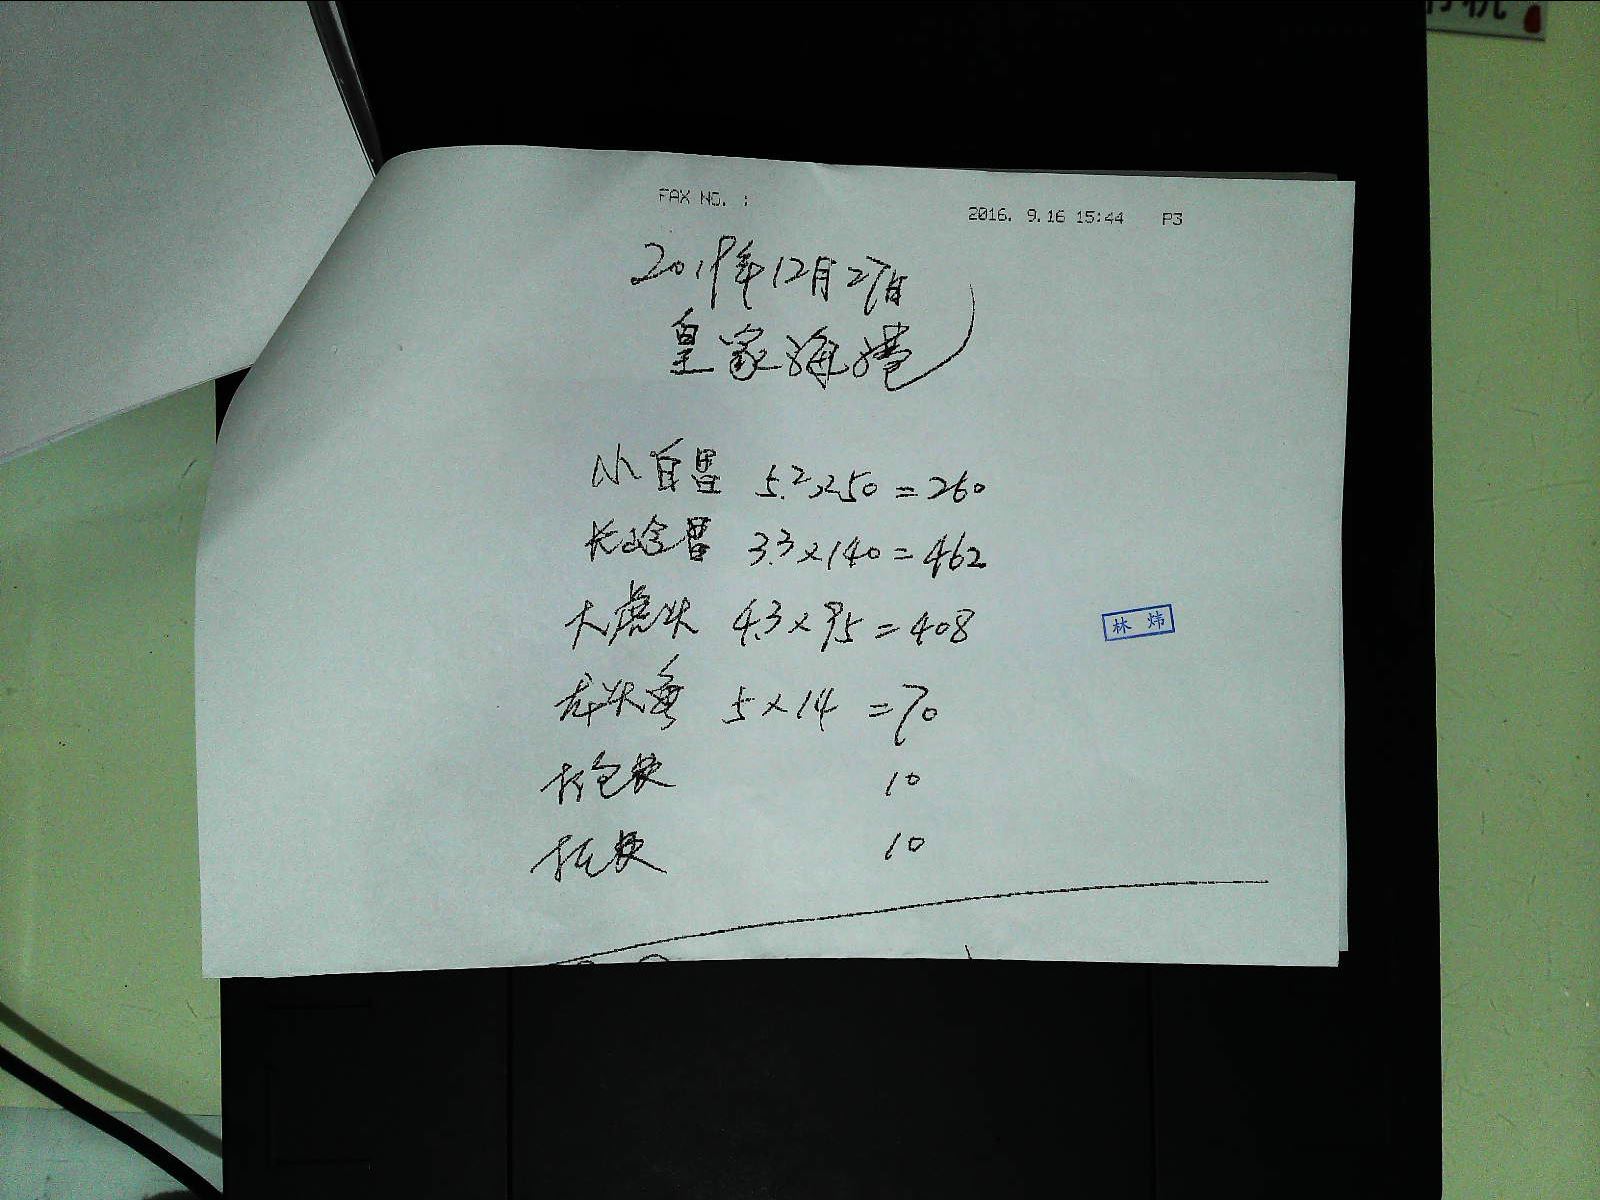 FAX NO. :
2016. 9.16 15:44 P3
2019年12月27日
皇家海港
小白鲳 5.2×50=260
长岭鲳 3.3×140=462
大虎头 4.3×95=408
龙头鱼 5×14=70
打包费 10
托费 10
林 炜